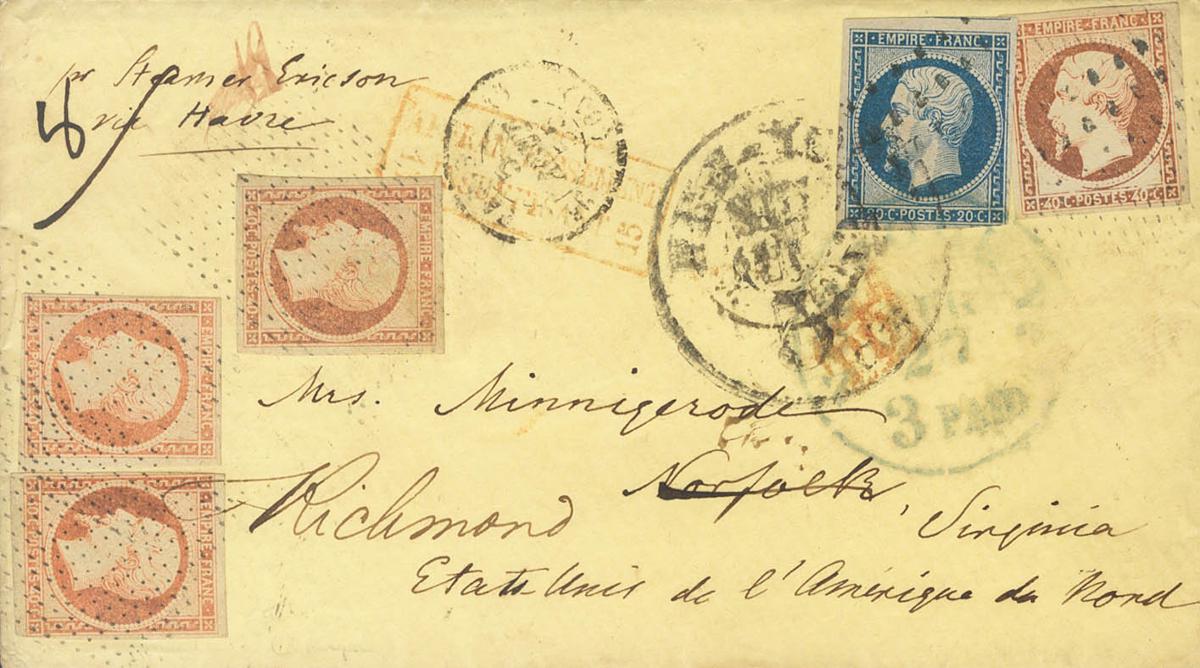 pr Stamer Ericson
via Havre
EMPIRE·FRANC·
20·C·POSTES·20·C·
EMPIRE·FRANC·
40·C·POSTES·40·C·
EMPIRE·FRANC·
EMPIRE·FRANC·
EMPIRE·FRANC·
NEW-YORK
AFFRANCHISSEMENT
15
27
3 PAID
Mrs. Minnigerode
Norfolk,
Richmond
Virginia
Etats Unis de l'Amérique du Nord